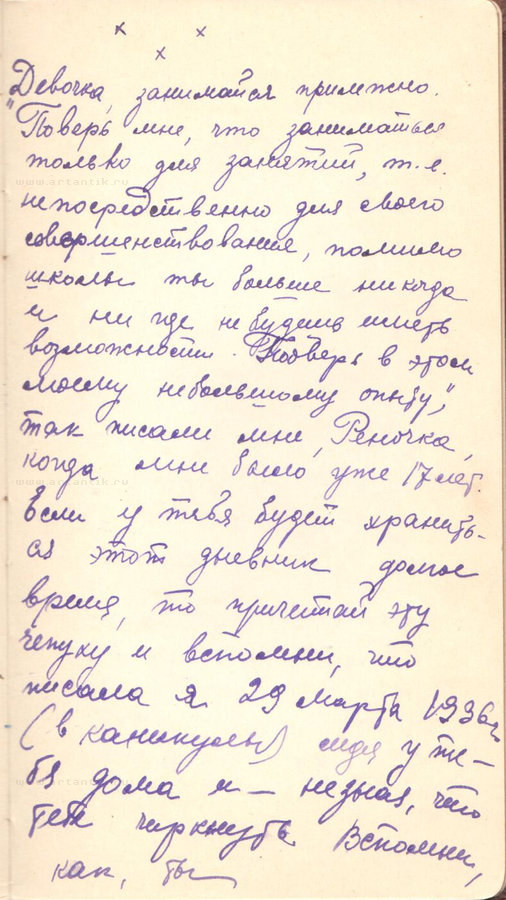 x x
x
"Девочка, занимайся прилежно.
Поверь мне, что заниматься
только для занятий, т.е.
непосредственно для своего
совершенствования, помимо
школы ты больше никогда
и ни где не будешь иметь
возможности. Поверь в этом
моему небольшому опыту",
так писали мне, Реночка,
когда мне было уже 17 лет.
Если у тебя будет хранить-
ся этот дневник долгое
время, то причитай эту
чепуху и вспомни, что
писала я 29 марта 1936 г.
(в каникулы) сидя у те-
бя дома и — незная, что
тебе чиркнуть. Вспомни,
как, ты
www.artantik.ru
www.artantik.ru
www.artantik.ru